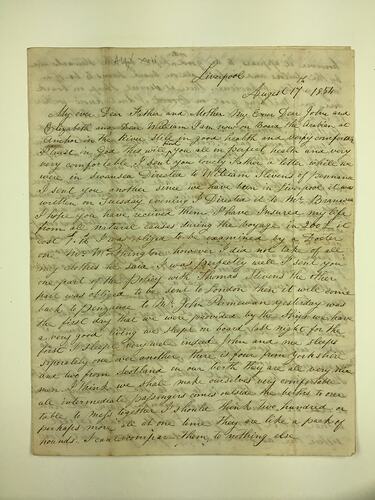 Liverpool
August 17th 1854
My ever Dear Father and Mother My Ever Dear John and
Elizabeth and Dear William I am now on Board the at
anchor in the River still in good health and very comfortable
I trust in God this will find you all in perfect health and very
very comfortable I sent you lovely Father a letter while we
were in Swansea Directed to William Stevens of Penzance
I sent you another since we have been in Liverpool it was
written on Tuesday evening I Directed it to Mr
I hope you have received them I have Insured my life
from all natural causes during the voyage in 200£ it
cost I was obliged to be examined by a Docter
one Mr however I did not take off all
my clothes he said I was perfectly well I sent you
one part of the Policy with Thomas Stevens the other
part was obliged to be sent to London then it will come
back to Penzance to Mr John yesterday was
the first day that we were provided by the Ship we have
a very good living we sleept on board last night for the
first I sleept very well indeed John and me sleeps
seperately one over another, there is four from Yorkshire
and two from Scotland in our berth they are all very nice
men I think we shall make ourselves very comfortable
all intermediate passengers comes outside the to our
table to mess together I should think two hundred or
perhaps more all at one time they are like a pack of
hounds. I can compare them to nothing else